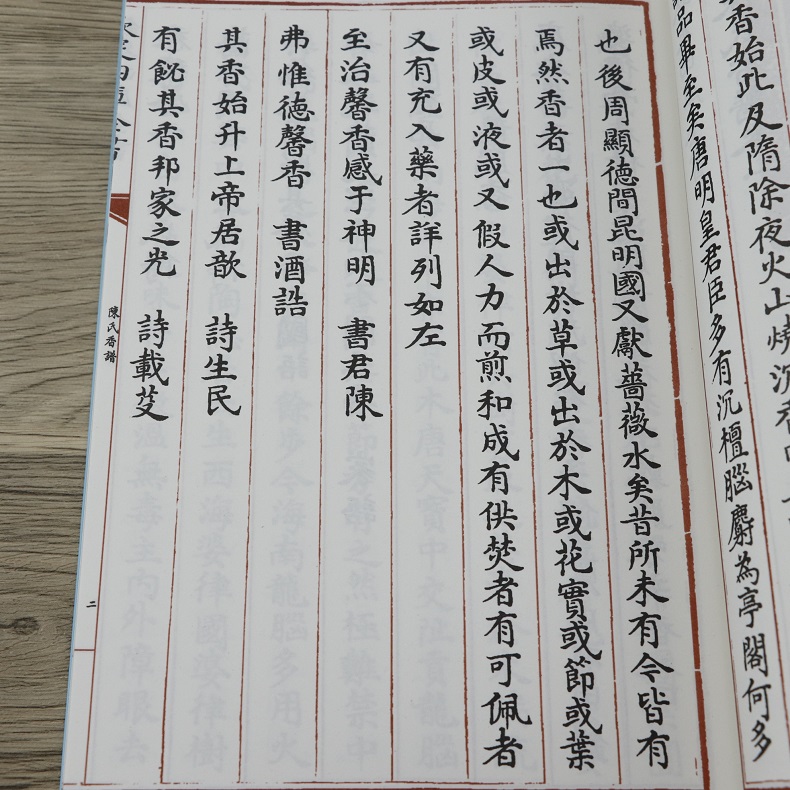 香始此及隋除夜火山燒沉香
品畢至矣唐明皇君臣多有沉檀腦麝為亭閣何多
也後周顯德間昆明國又獻薔薇水矣昔所未有今皆有
焉然香者一也或出於草或出於木或花實或節或葉
或皮或液或又假人力而煎和成有供焚者有可佩者
又有充入藥者詳列如左
至治馨香感于神明 書君陳
弗惟德馨香 書酒誥
其香始升上帝居歆 詩生民
有飶其香邦家之光 詩載芟
陳氏香譜
二